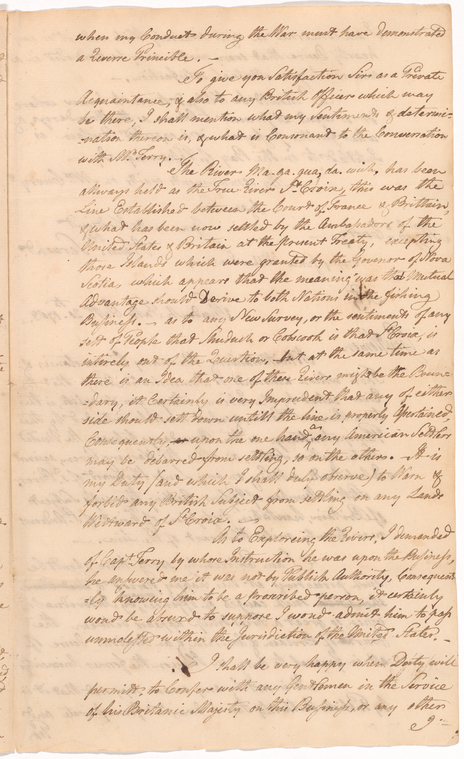 when my Conduct during the War must have demonstrated
a Reverse Principle. —
To give you Satisfaction Sir as a Private
Acquaintance, & also to any British Officer which may
be there, I shall mention what my Sentiments & determi-
nation thereon is, & what is Consonant to the Conversation
with Mr. Ferry. —
The River Ma-ga-gua-da-wick, has been
allways held as the True River St. Croix, this was the
Line Established between the Court of France & Brittain
& what has been now settled by the Ambasadors of the
United States & Britain at the present Treaty, excepting
those Islands which were granted by the Govenor of Nova
Scotia, which appears that the meaning was that Mutual
Advantage should Derive to both Nations in the Fishing
Business. — as to any New Survey, or the sentiments of any
sett of People that Shuduck or Cobscook is that St. Croix, is
intirely out of the Question, but at the same time as
there is an Idea that one of these Rivers might be the Boun-
dary, it Certainly is very Imprudent that any of either
side should sett down untill the line is properly Assertained
Consequently upon the one hand, any American Settlers
may be debarred from settling, so on the other. — It is
my Duty (and which I shall duly observe) to Warn &
forbid any British Subject from setling on any Lands
Westward of St. Croix. —
As to Exploreing the Rivers, I demanded
of Capt. Ferry by whose Instruction he was upon the Business,
he answered me it was not by Publick Authority, Consequent-
-ly knowing him to be a proscribed person, it certainly
wou'd be absurd to suppose I wou'd admit him to pass
unmolested within the Jurisdiction of the United States. —
I shall be very happy when Duty will
permit, to Confer with any Gentlemen in the Service
of his Britanic Majesty on this Business, or any other